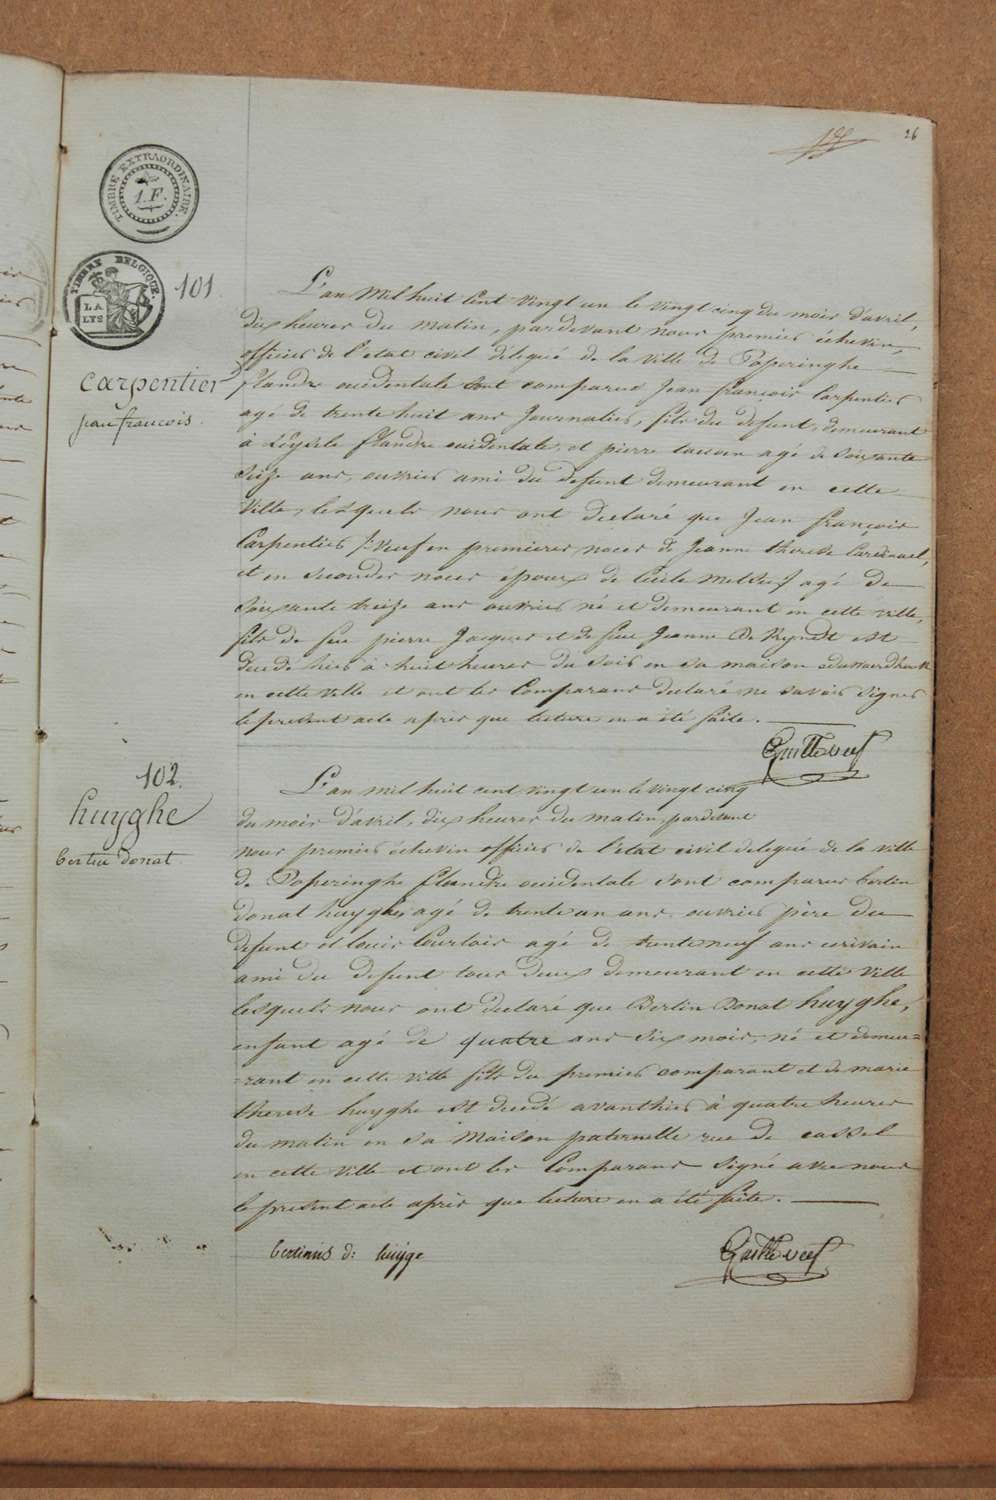 26
TIMBRE EXTRAORDINAIRE.
1.F.
TIMBRE BELGIQUE.
LA LYS
101
carpentier
jean francois.
L'an mil huit cent vingt un le vingt cinq du mois d'avril,
dix heures du matin, pardevant nous premier échevin,
officier de l'etat civil délegué de la ville de Poperinghe
flandre occidentale sont comparus Jean françois Carpentier
agé de trente huit ans Journalier, fils du defunt, demeurant
à flandre occidentale, et pierre agé de soixante
seize ans, ouvrier ami du defunt demeurant en cette
ville, lesquels nous ont declaré que Jean françois
Carpentier veuf en premieres noces de Jeanne therese Cardinael,
et en secondes noces époux de Cécile agé de
soixante treize ans ouvrier né et demeurant en cette ville,
fils de feu pierre Jacques et de feue Jeanne De Reyndt est
decedé hier à huit heures du soir en sa maison
en cette ville et ont les Comparans declaré ne savoir signer
le present acte après que lecture en a été faite.
102.
huyghe
bertin donat
L'an mil huit cent vingt un le vingt cinq
du mois d'avril, dix heures du matin, pardevant
nous premier échevin officier de l'etat civil delegué de la ville
de Poperinghe flandre occidentale sont comparus bertin
donat huyghe, agé de trente un ans, ouvrier père du
defunt et louis Courtois agé de trente neuf ans ecrivain
ami du defunt tous deux demeurant en cette ville
lesquels nous ont declaré que Bertin Donat huyghe,
enfant agé de quatre ans six mois, né et demeu=
=rant en cette ville fils du premier comparant et de marie
therese huyghe est decedé avanthier à quatre heures
du matin en sa maison paternelle rue de cassel
en cette ville et ont les Comparans signé avec nous
le present acte après que lecture en a été faite.
bertinus d: huyge